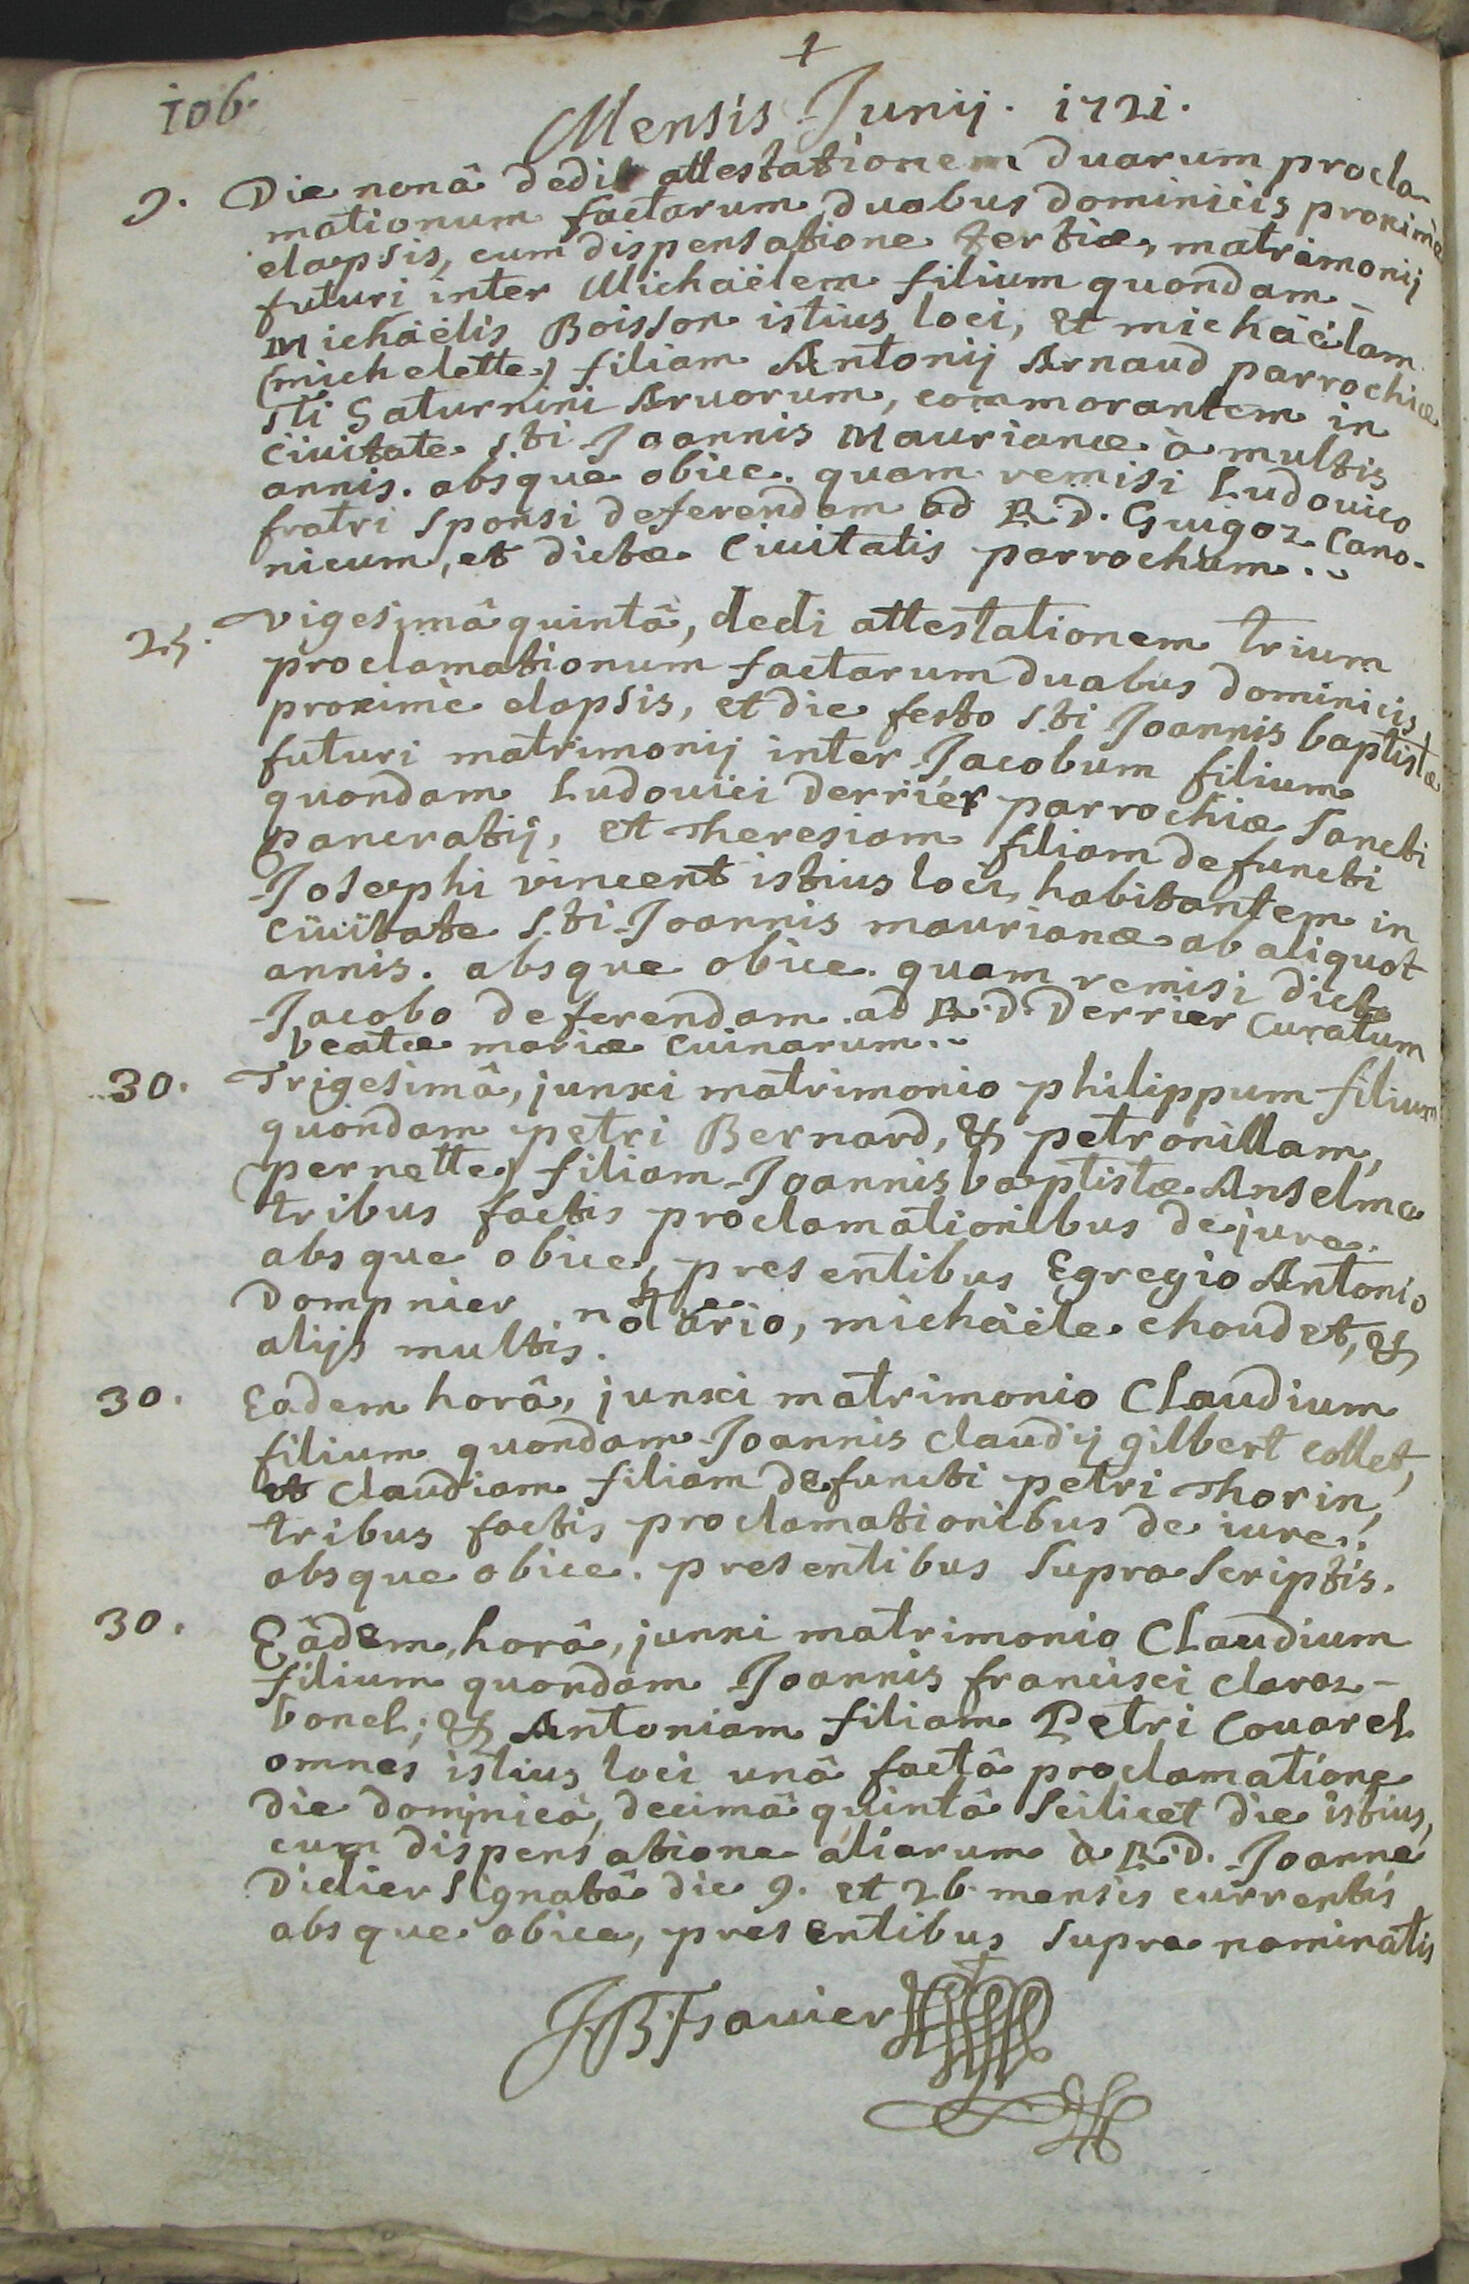 +
106.
Mensis Junij. 1721.
9. Die nonâ dedi attestationem duarum procla-
mationum factarum duabus dominicis proximè
elapsis, cum dispensatione tertiæ, matrimonij
futuri inter Michaëlem filium quondam -
Michaëlis Boisson istius loci, et michaëlam
(michelette) filiam Antonij Arnaud parrochiæ
sti Saturnini Aruorum, commorantem in
ciuitate s.ti Joannis Maurianæ à multis
annis. absque obice. quam remisi Ludovico
fratri sponsi deferendam ad R.D. Guigoz Cano-
nicum, et dictæ Ciuitatis parrochum..
25. vigesimâ quintâ, dedi attestationem trium
proclamationum factarum duabus dominicis
proximè elapsis, et die festo s.ti Joannis baptistæ
futuri matrimonij inter Jacobum filium
quondam Ludouici Derrier parrochiæ Sancti
pancratij, et Theresiam filiam defuncti
Josephi vincent istius loci, habitantem in
ciuitate s.ti Joannis maurianæ ab aliquot
annis. absque obice. quam remisi dicto
Jacobo deferendam ad R.D. Derrier Curatum
beatæ mariæ Cuinarum..
30. Trigesimâ, junxi matrimonio philippum filium
quondam petri Bernard, & petronillam,
(pernette) filiam Joannis baptistæ Anselme
tribus factis proclamationibus de jure.
absque obice, presentibus Egregio Antonio
Dompnier notario, michaële choudet, &
alijs multis.
30. Eadem horâ, junxi matrimonio Claudium
filium quondam Joannis claudij gilbert collet,
et claudiam filiam defuncti petri Thorin,
tribus factis proclamationibus de iure.
absque obice. presentibus supra scriptis.
30. Eâdem, horâ, junxi matrimonio Claudium
filium quondam Joannis francisci claraz-
bonel; & Antoniam filiam Petri Couarel
omnes istius loci unâ factâ proclamatione
die dominicâ, decimâ quintâ scilicet die istius,
cum dispensatione aliarum à R.D. Joanne
Didier signatâ die 9. et 26 mensis currentis
absque obice, presentibus supra nominatis
JB Favier